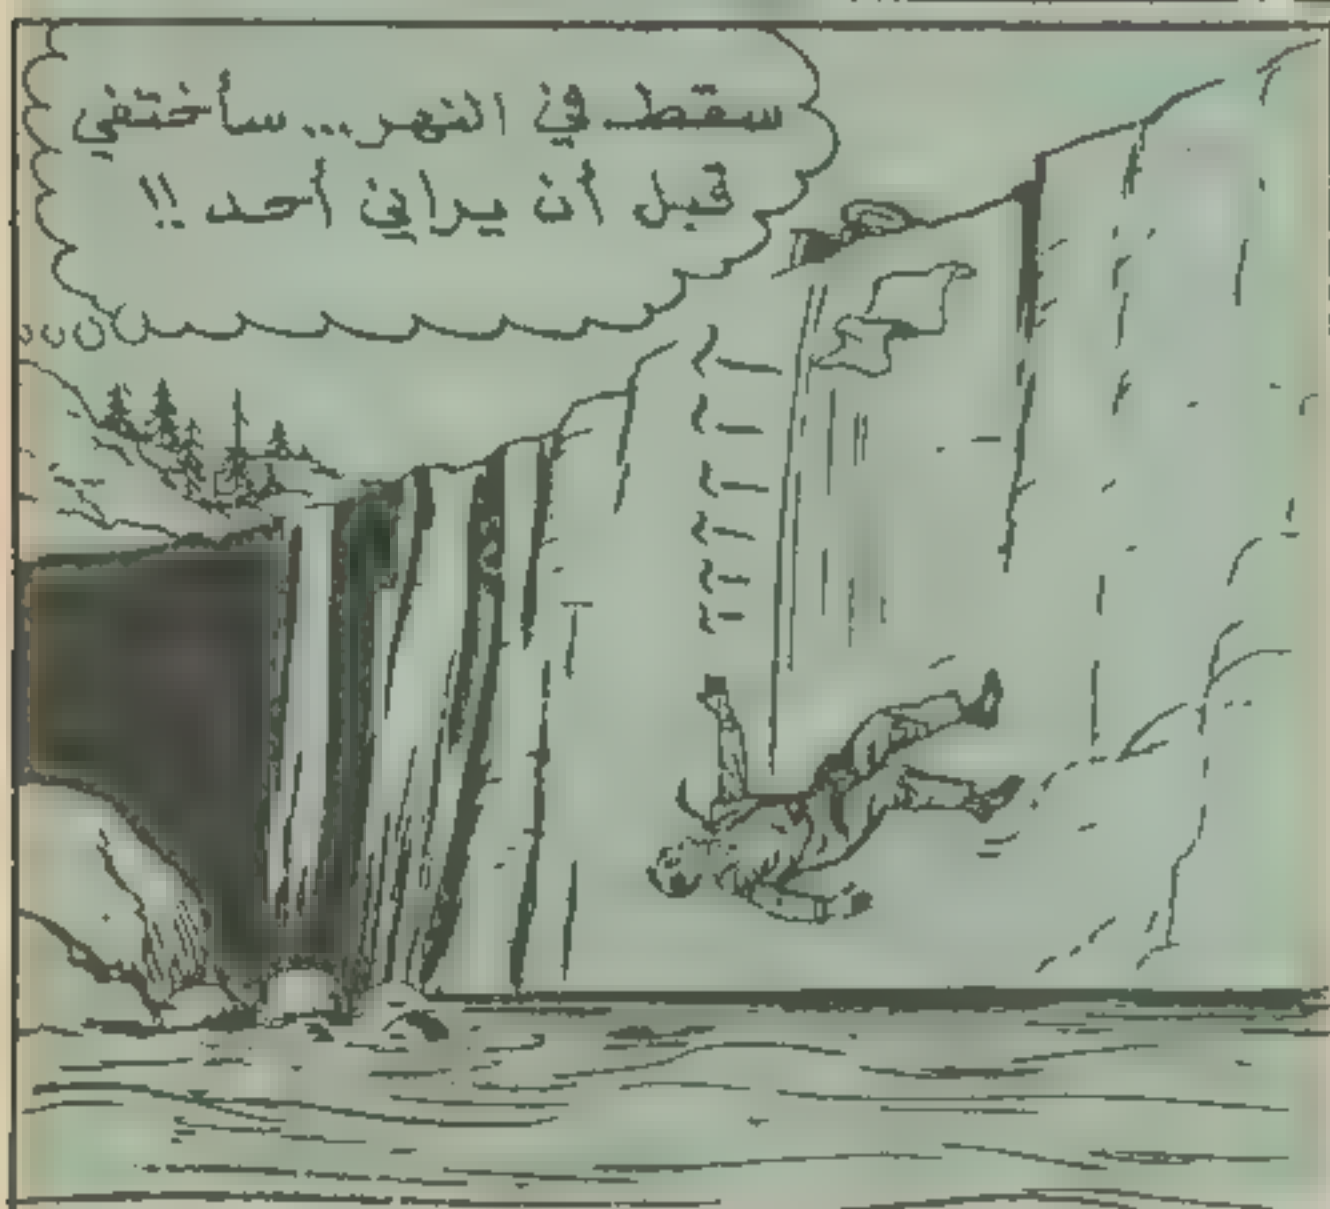 سقط في النهر... سأختفي
قبل أن يراني أحد !!